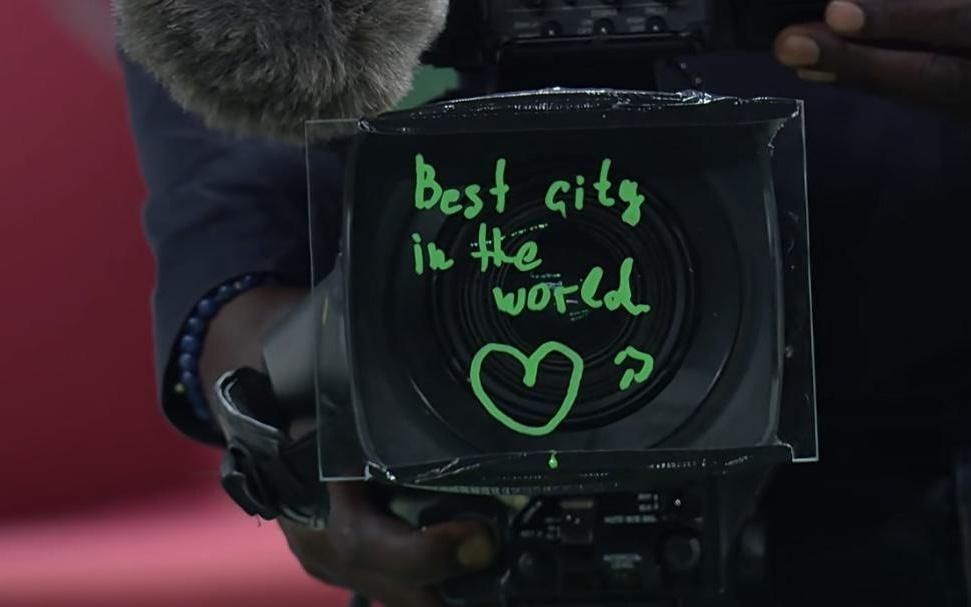 Best city
in the
world.
♡ :)